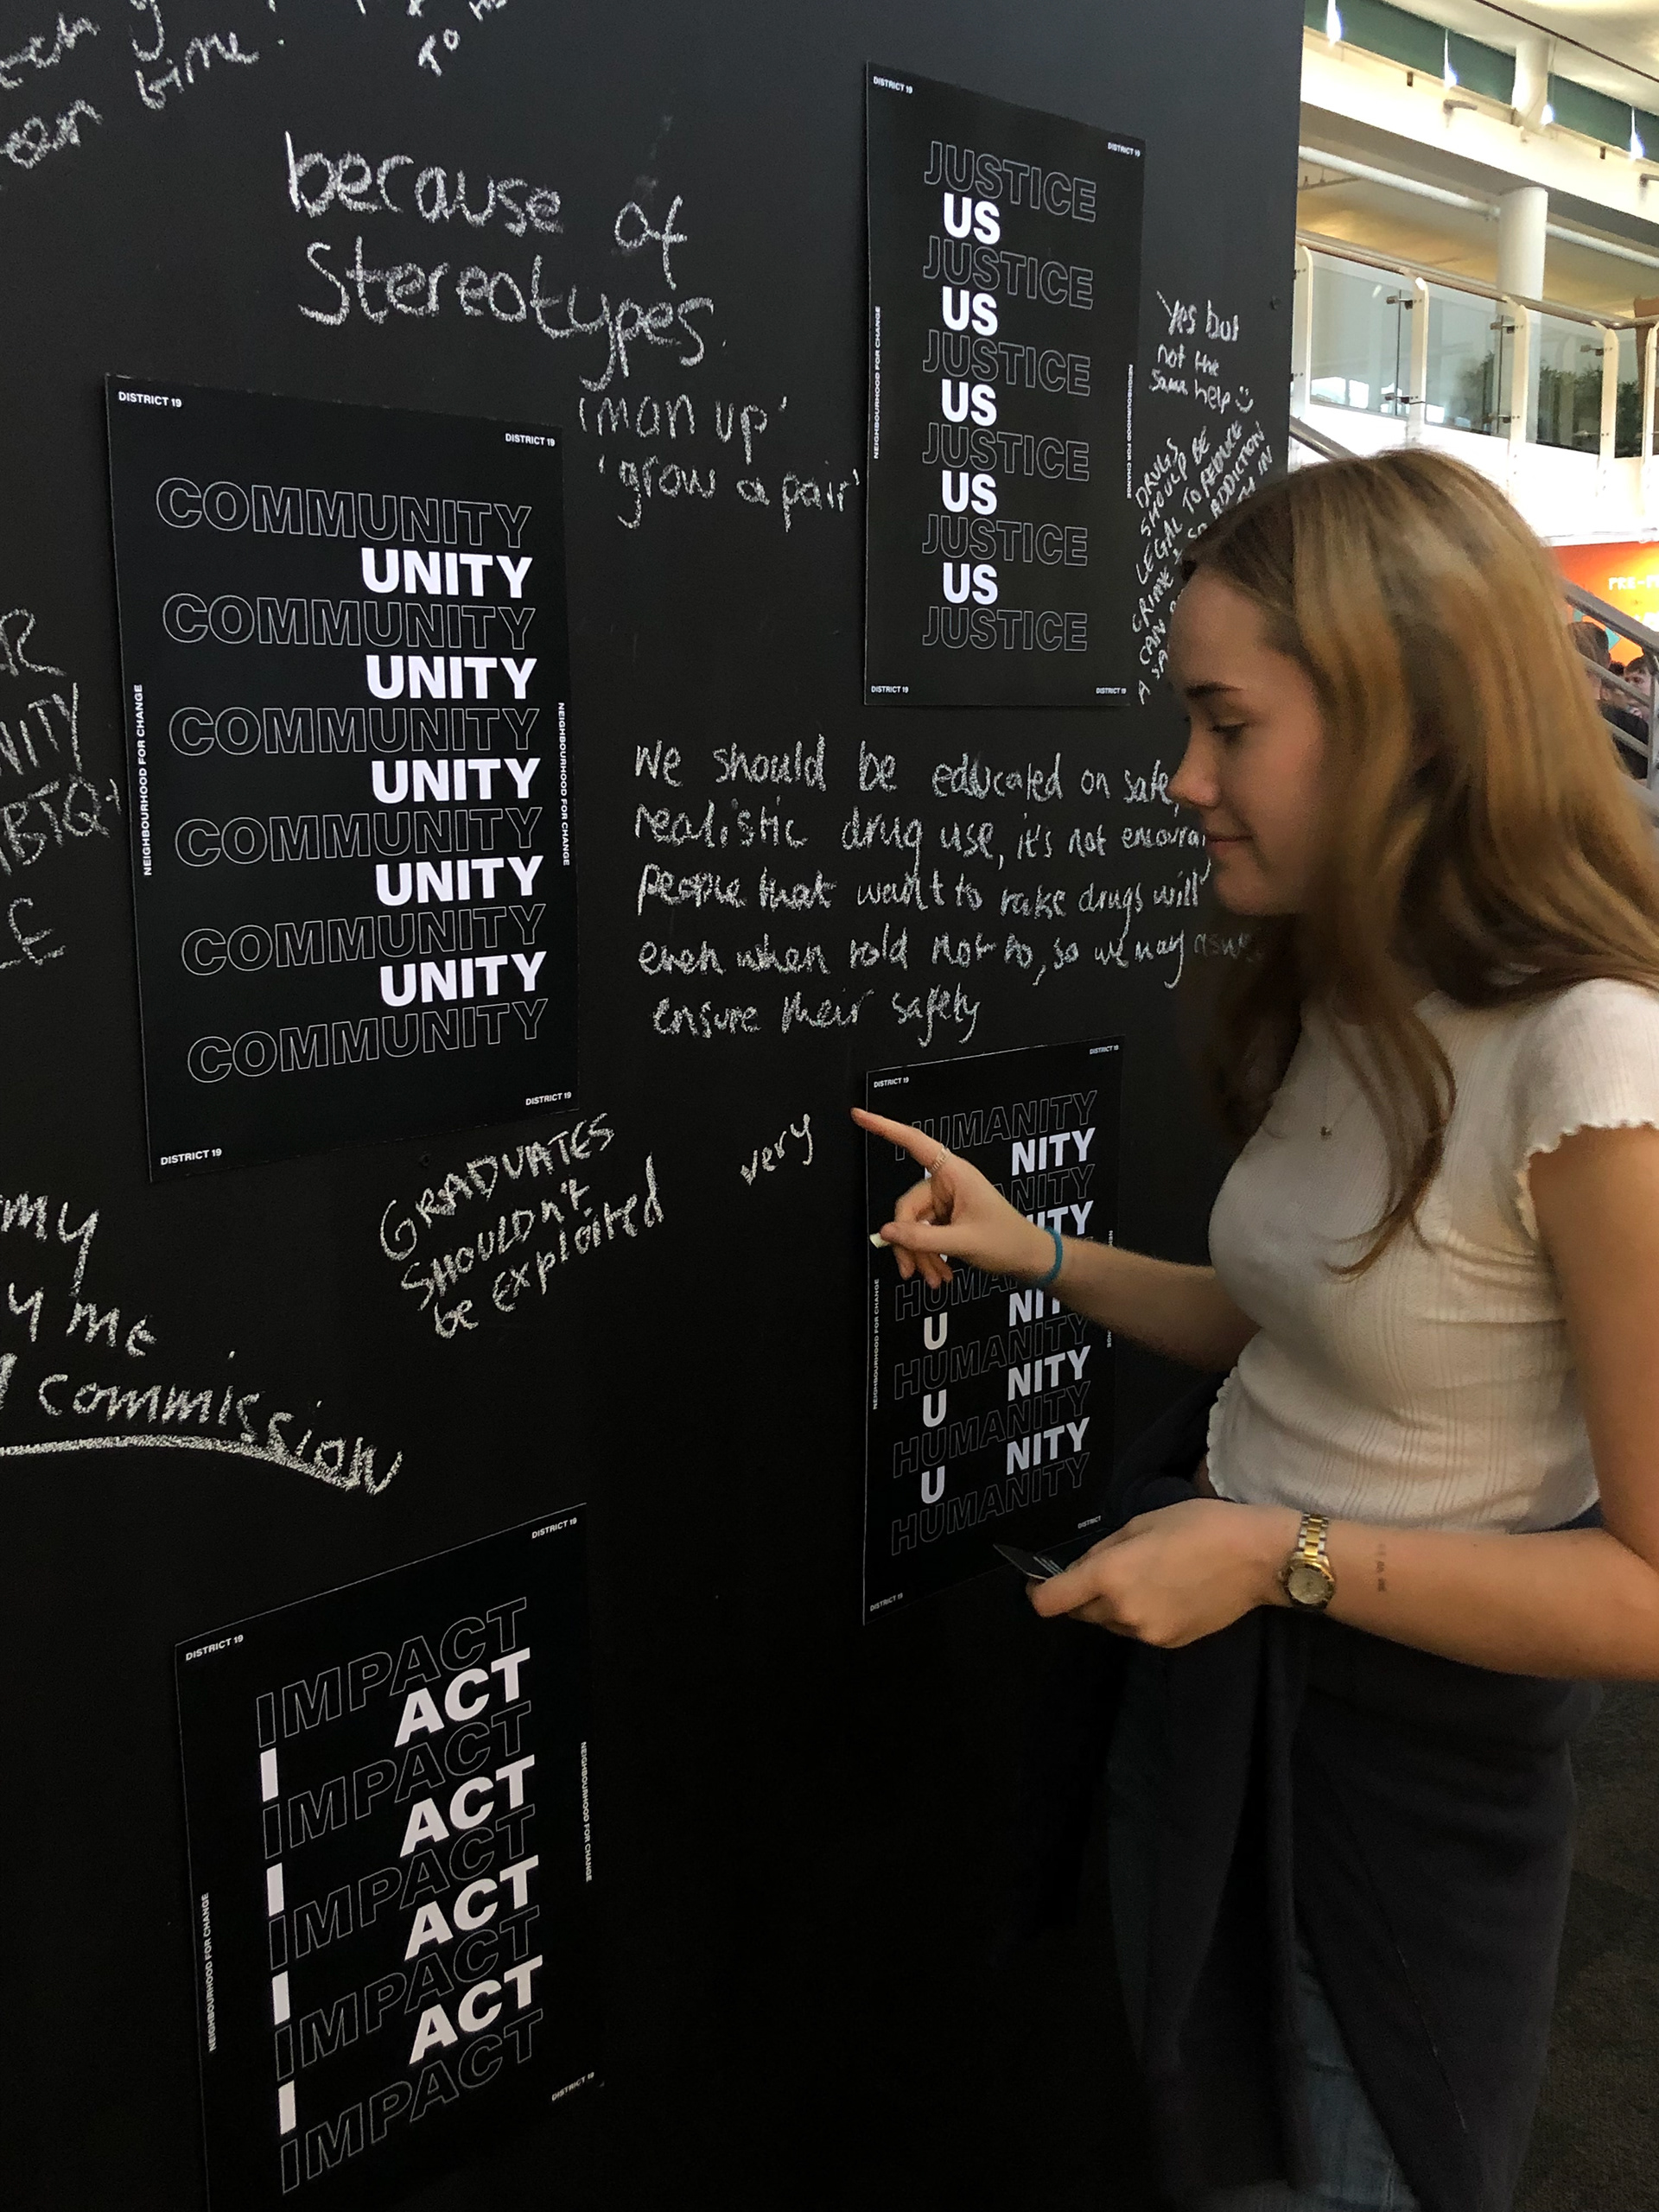 time.
To
because of
Stereotypes.
'man up'
'grow a pair'
DISTRICT 19
DISTRICT 19
JUSTICE
US
JUSTICE
US
JUSTICE
US
JUSTICE
US
JUSTICE
US
JUSTICE
NEIGHBOURHOOD FOR CHANGE
NEIGHBOURHOOD FOR CHANGE
DISTRICT 19
DISTRICT 19
Yes but
not the
same help
DRUGS
SHOULD BE
LEGAL TO REDUCE
CRIME
SO ADDICTION
CAN
A
IN
DISTRICT 19
DISTRICT 19
COMMUNITY
UNITY
COMMUNITY
UNITY
COMMUNITY
UNITY
COMMUNITY
UNITY
COMMUNITY
UNITY
COMMUNITY
NEIGHBOURHOOD FOR CHANGE
NEIGHBOURHOOD FOR CHANGE
DISTRICT 19
DISTRICT 19
We should be educated on safe,
realistic drug use, it's not
people that want to take drugs will
even when told not to, so we may
ensure their safety
GRADUATES
SHOULDN't
be exploited
very
my
me
commission
DISTRICT 19
DISTRICT 19
HUMANITY
NITY
HUMANITY
U NITY
HUMANITY
U NITY
HUMANITY
U NITY
HUMANITY
NEIGHBOURHOOD FOR CHANGE
DISTRICT
DISTRICT 19
DISTRICT 19
DISTRICT 19
IMPACT
I ACT
IMPACT
I ACT
IMPACT
I ACT
IMPACT
I ACT
IMPACT
NEIGHBOURHOOD FOR CHANGE
NEIGHBOURHOOD FOR CHANGE
DISTRICT 19